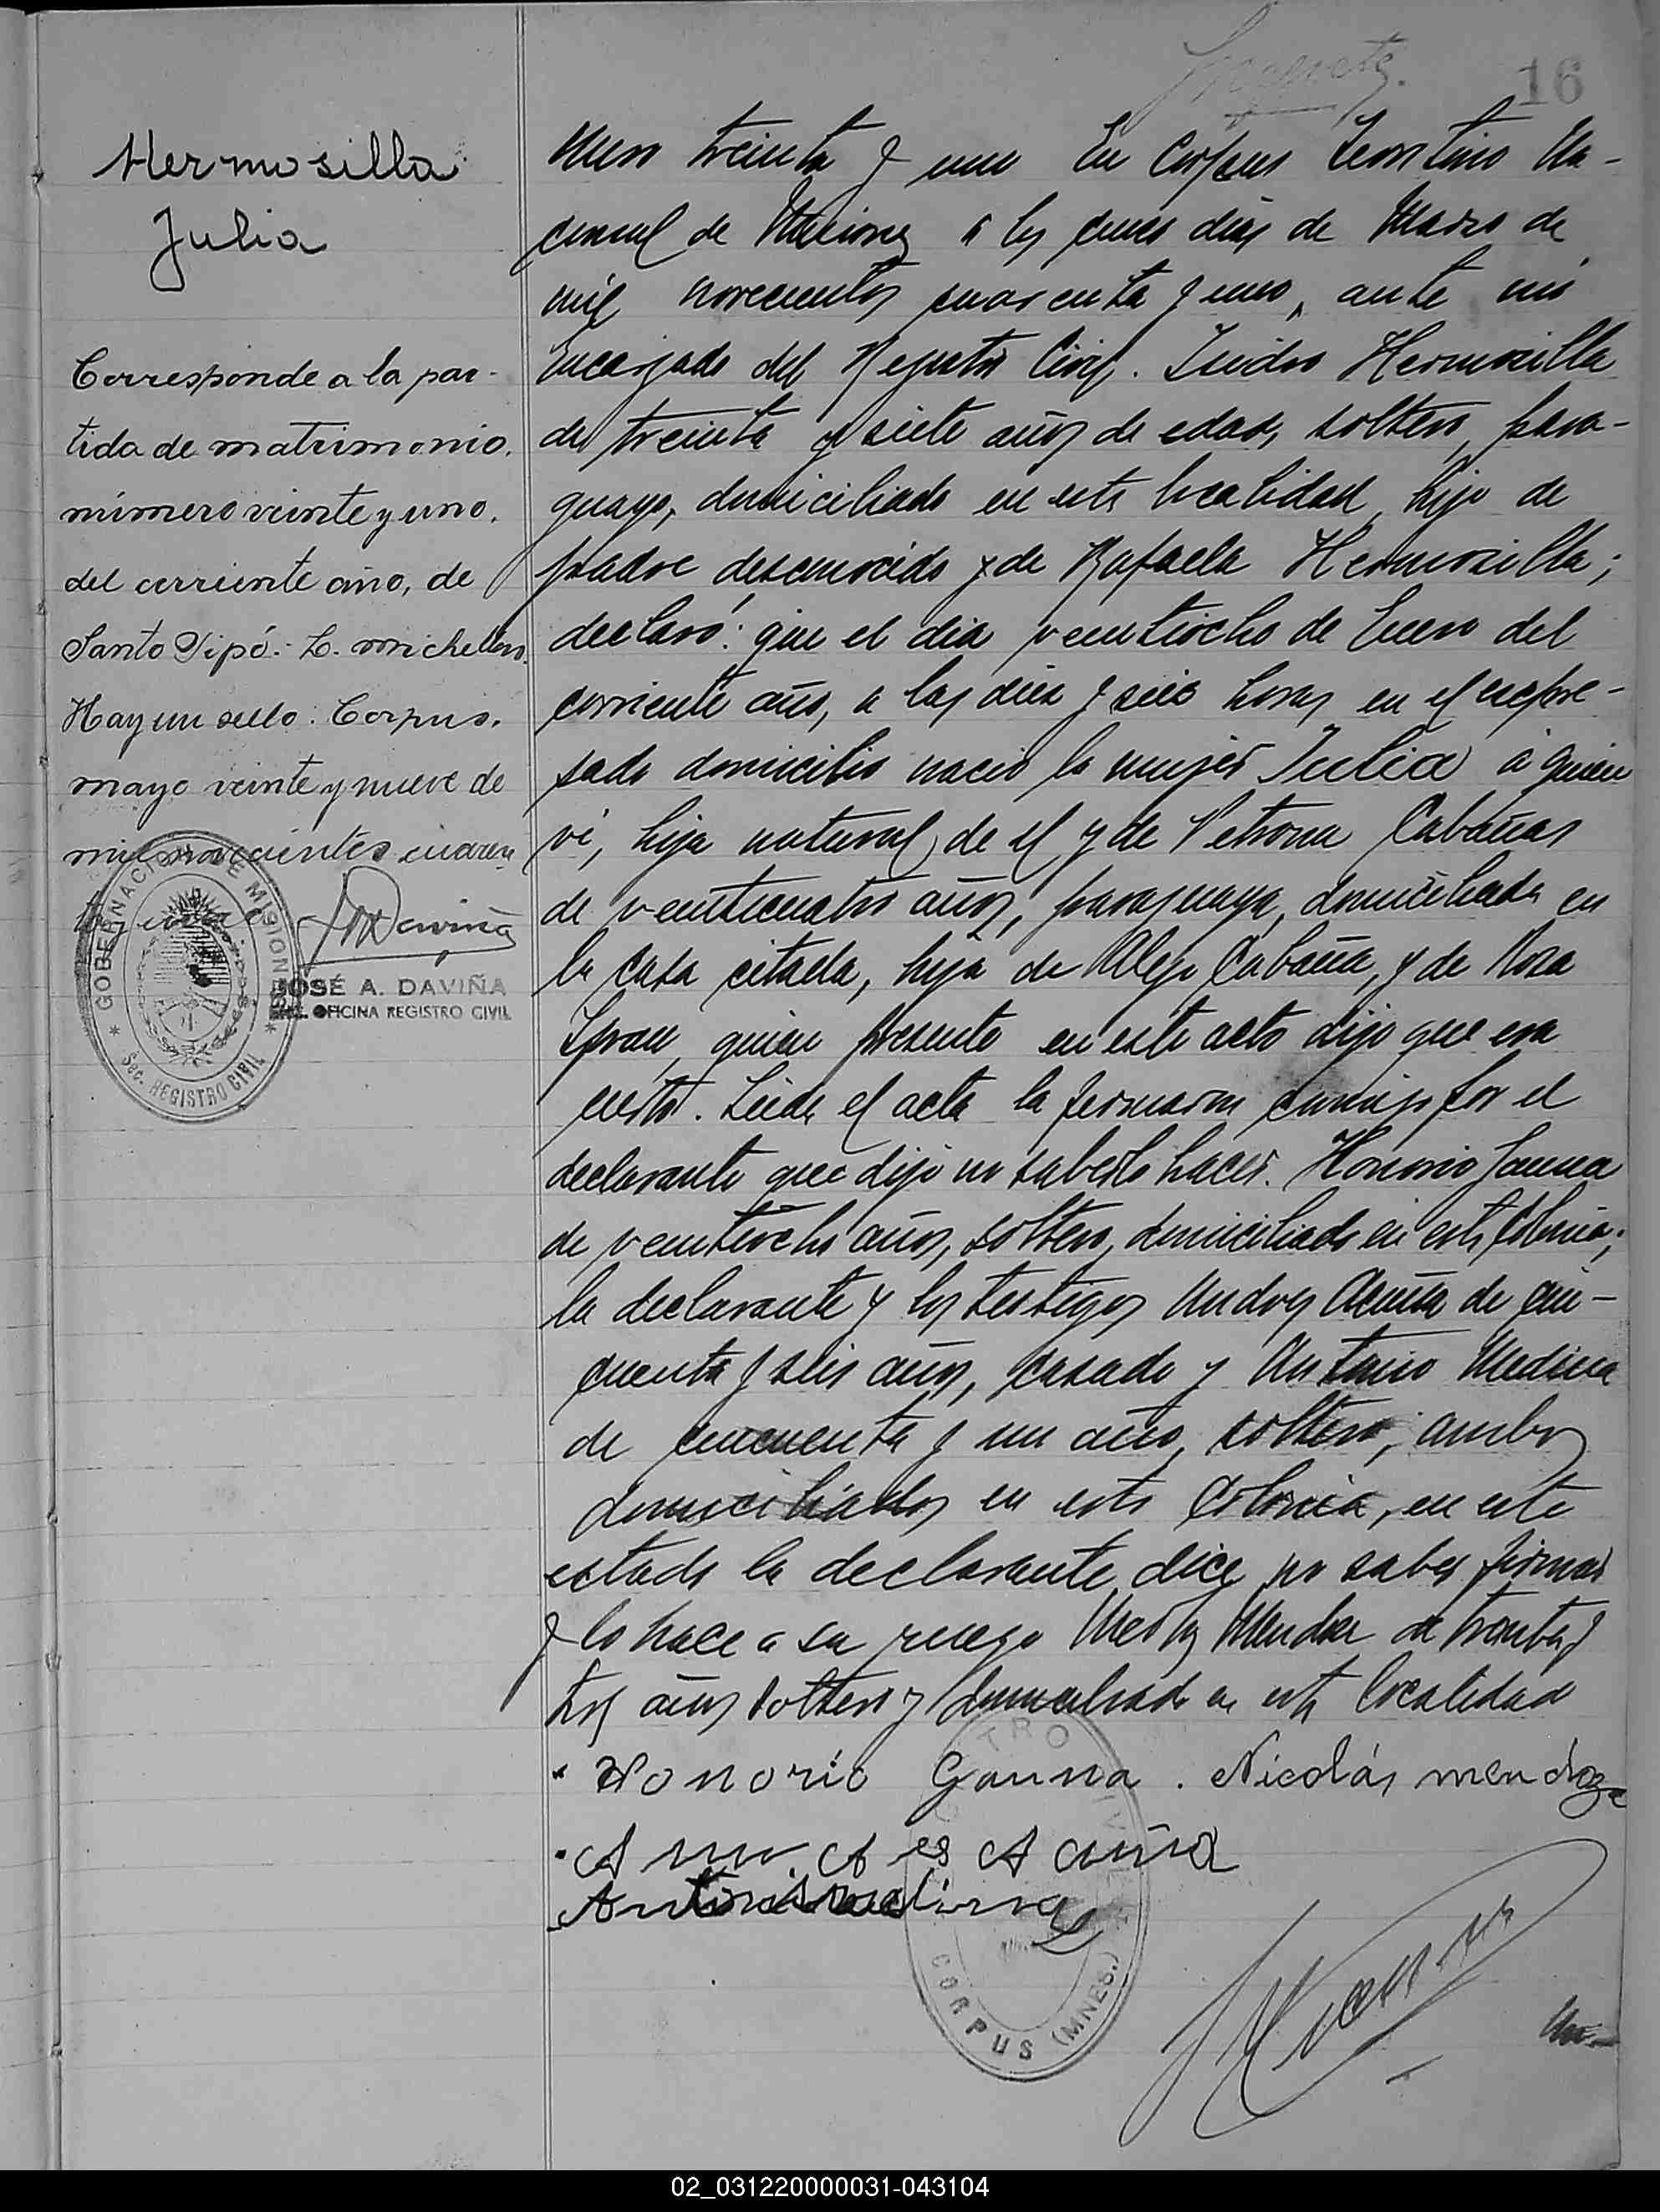 16
Hermosilla
Julia
Corresponde a la par-
tida de matrimonio.
número veinte y uno.
del corriente año, de
Santo Pipó.- L. Michellon.
Hay un sello: Corpus.
mayo veinte y nueve de
mil novecientos cuaren
JOSÉ A. DAVIÑA
OFICINA REGISTRO CIVIL
GOBERNACION DE MISIONES
Sec. REGISTRO CIVIL
treinta y uno En Corpus Territorio Na-
cional de Misiones a los cinco dias de Marzo de
mil novecientos cuarenta y uno, ante mi
Encargado del Registro Civil. Isidro Hermosilla
de treinta y siete años de edad, soltero, para-
guayo, domiciliado en esta localidad, hijo de
padre desconocido y de Rafaela Hermosilla;
declaró: que el dia veintiocho de Enero del
corriente año, a las diez y seis horas en el expre-
sado domicilio nació la mujer Julia a quien
vi, hija natural de el y de Petrona Cabañas
de veinticuatro años, paraguaya, domiciliada en
la casa citada, hija de Alejo Cabaña, y de Rosa
quien presente en este acto dijo que era
cierto. Leida el acta la firmaron conmigo por el
declarante que dijo no saberlo hacer. Honorio Gauna
de veintiocho años, soltero, domiciliado en esta Colonia;
la declarante y los testigos Andres Acuña de cin-
cuenta y seis años, casado y Antonio Medina
de cincuenta y un año, soltero, ambos
domiciliados en esta Colonia, en este
estado la declarante dice no saber firmar
y lo hace a su ruego Mendoza de treinta y
tres años soltero y domiciliado en esta localidad
Honorio Gauna. Nicolás mendoza
Andres Acuña
Antonio medina
CORPUS (MNES.)
02_031220000031-043104